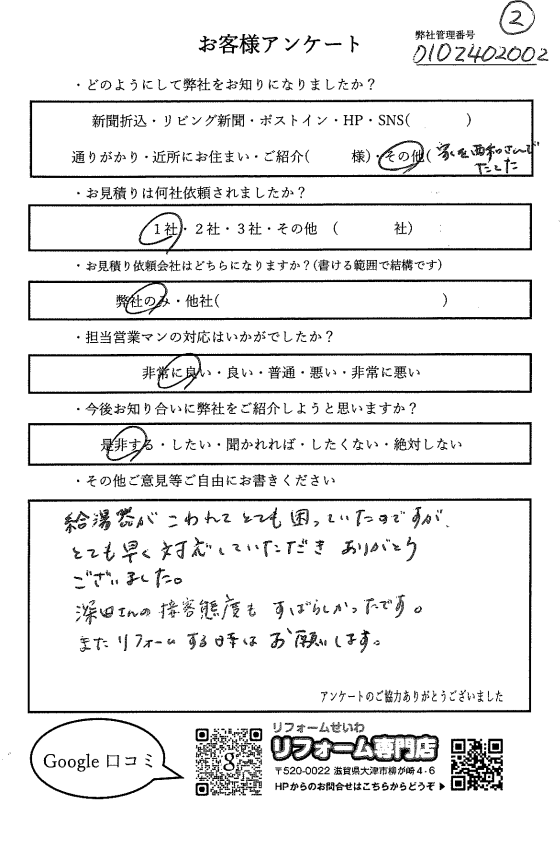 ②
お客様アンケート
弊社管理番号
0102402002
・どのようにして弊社をお知りになりましたか？
新聞折込・リビング新聞・ポストイン・HP・SNS(　　　　)
通りがかり・近所にお住まい・ご紹介(　　　様)・その他(家を西和さんで
たてた
・お見積りは何社依頼されましたか？
１社・２社・３社・その他　(　　　　社)
・お見積り依頼会社はどちらになりますか？(書ける範囲で結構です)
弊社のみ・他社(　　　　　　　　　　　　　　　)
・担当営業マンの対応はいかがでしたか？
非常に良い・良い・普通・悪い・非常に悪い
・今後お知り合いに弊社をご紹介しようと思いますか？
是非する・したい・聞かれれば・したくない・絶対しない
・その他ご意見等ご自由にお書きください
給湯器が こわれて とても 困っていたのですが、
とても早く対応していただき ありがとう
ございました。
深田さんの接客態度も すばらしかったです。
またリフォームする時は お願いします。
アンケートのご協力ありがとうございました
Google 口コミ
g
リフォームせいわ
リフォーム専門店
〒520-0022 滋賀県大津市柳が崎４-６
HPからのお問合せはこちらからどうぞ▶